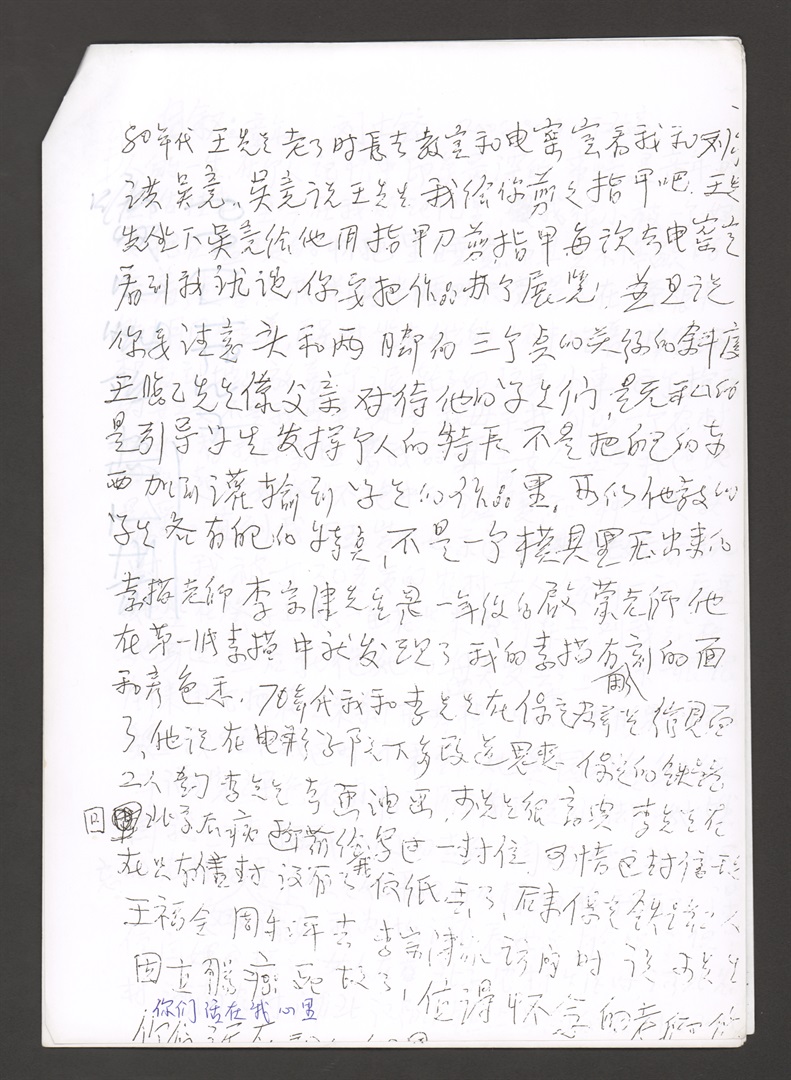 80年代 王先生老了时长去教室和电窑室看我和刘
洪吴竞、吴竞说王先生我给你剪之指甲吧.王先
先坐下吴竞给他用指甲刀剪指甲每次去电窑室
看到我就说、你要把作品办个展览.並且说
你要注意头和两脚的三个点的关系的斜度
王临乙先生像父亲对待他的学生们,是无私的
是引导学生发挥个人的特长 不是把自己的东
西加到灌输到学生的作品里,所以他教的
学生各有自己的特点,不是一个模具里压出来的
素描老师李宗津先生是一年级的启蒙老师他
在第一次素描中就发现了我的素描有刻的面
和彦色 70年代我和李先生在保定 见面
了,他说在电影学院下乡改造思想 保定的
工人 李先生去画油画,李先生很高兴 李先生在
回北京后病 前给我写过一封信,可惜这封信现
在只有信封 没有了信纸丢了,后来保定 人
王福全 周 评去李宗津家访问时 说 李先生
因 癌 故了,值得怀念的老师你
你们活在我心里